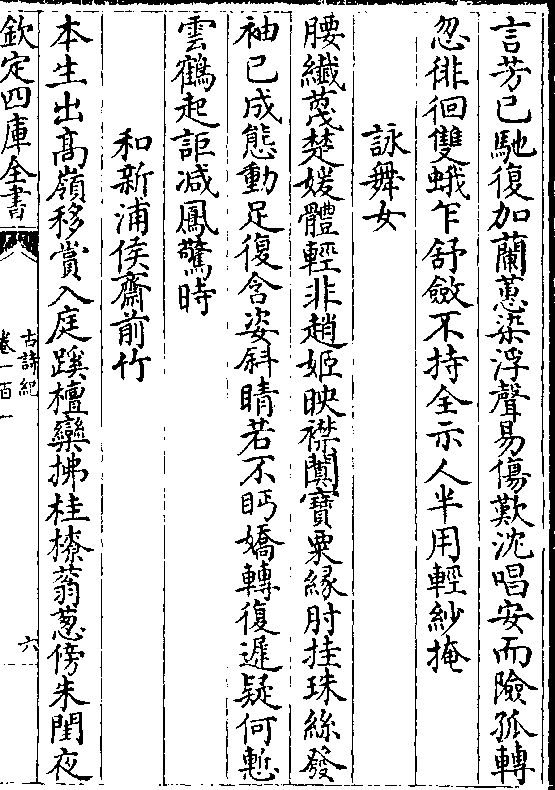 言芳已馳復加蘭蕙染浮聲易傷歎沈唱安而險孤轉
忽徘徊雙蛾乍舒斂不持全示人半用輕紗掩
詠舞女
腰纖蔑楚媛體輕非趙姬映襟闐寶粟緣肘挂珠絲發
袖已成態動足復含姿斜睛若不眄嬌轉復遲疑何慙
雲鶴起詎減鳳驚時
和新浦侯齋前竹
本生出高嶺移賞入庭蹊檀欒拂桂橑蓊葱傍朱閨夜
欽定四庫全書
古詩紀
卷一百一
六